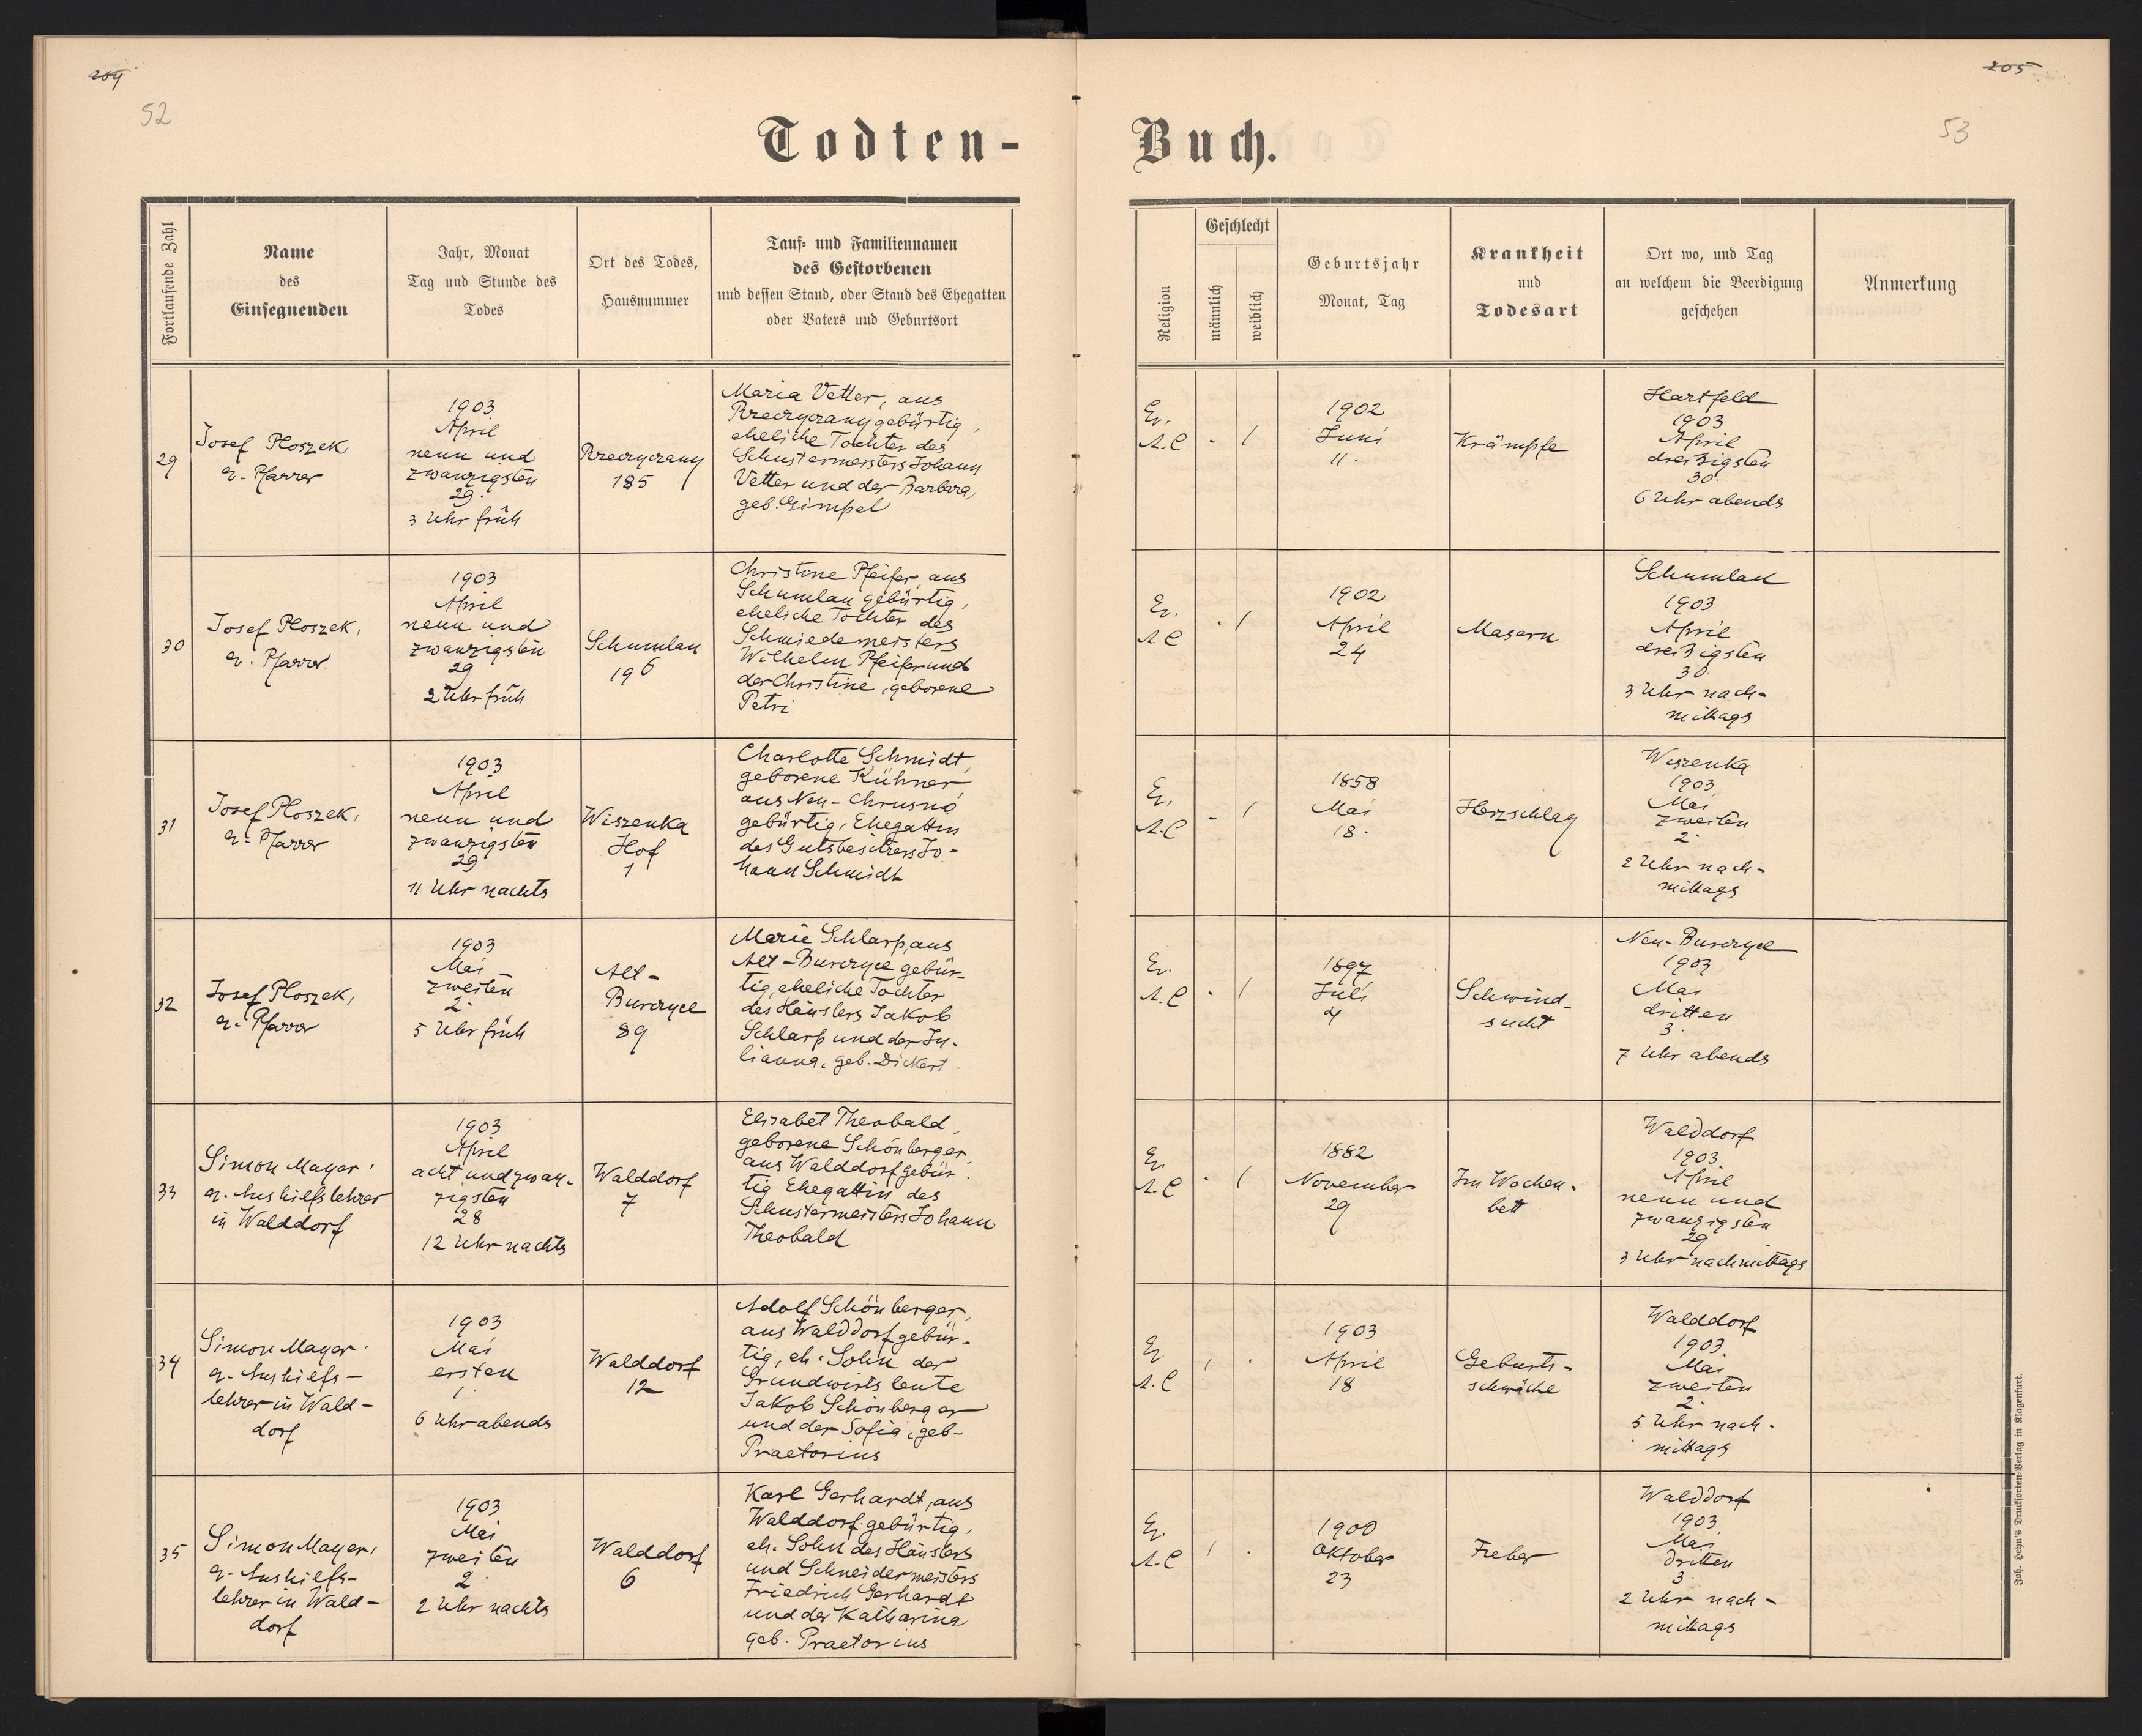 204
205
52
53
Todten-
Buch.
Fortlaufende Zahl
Name
des
Einsegnenden
Jahr, Monat
Tag und Stunde des
Todes
Ort des Todes,
Hausnummer
Tauf- und Familiennamen
des Gestorbenen
und dessen Stand, oder Stand des Ehegatten
oder Vaters und Geburtsort
Religion
Geschlecht
männlich
weiblich
Geburtsjahr
Monat, Tag
Krankheit
und
Todesart
Ort wo, und Tag
an welchem die Beerdigung
geschehen
Anmerkung
29
Josef Ploszek
ev. Pfarrer
1903
April
neun und
zwanzigsten
29.
3 Uhr früh
Rzeczyczany
185
Maria Vetter, aus
Rzeczyczany gebürtig,
eheliche Tochter des
Schustermeisters Johann
Vetter und der Barbara,
geb. Gimpel
Ev.
A.C
- /
1902
Juni
11.
Krämpfe
Hartfeld
1903
April
dreißigsten
30.
6 Uhr abends
30
Josef Ploszek,
ev. Pfarrer
1903
April
neun und
zwanzigsten
29
2 Uhr früh
Schumlau
196
Christine Pfeifer, aus
Schumlau gebürtig,
eheliche Tochter des
Schmiedemeisters
Wilhelm Pfeifer und
der Christine, geborene
Petri
Ev.
A C
- /
1902
April
24
Masern
Schumlau
1903
April
dreißigsten
30
3 Uhr nach-
mittags
31
Josef Ploszek,
ev. Pfarrer
1903
April
neun und
zwanzigsten
29
11 Uhr nachts
Wiszenka
Hof
1
Charlotte Schmidt,
geborene Kühner
aus Neu-Chrusno
gebürtig, Ehegattin
des Gutsbesitzers Jo-
hann Schmidt
Ev.
A.C
- /
1858
Mai
18.
Herzschlag
Wiszenka
1903
Mai
zweiten
2.
2 Uhr nach-
mittags
32
Josef Ploszek,
ev. Pfarrer
1903
Mai
zweiten
2.
5 Uhr früh
Alt-
Burczyce
89
Marie Schlarp, aus
Alt-Burczyce gebür-
tig, eheliche Tochter
des Häuslers Jakob
Schlarp und der Ju-
lianna, geb. Dickert.
Ev.
A.C
- /
1897
Juli
4
Schwind-
sucht
Neu-Burczyce
1903
Mai
dritten
3.
7 Uhr abends
33
Simon Mayer,
ev. Aushilfslehrer
in Walddorf
1903
April
acht und zwan-
zigsten
28
12 Uhr nachts
Walddorf
7
Elisabet Theobald,
geborene Schönberger
aus Walddorf gebür-
tig Ehegattin des
Schustermeisters Johann
Theobald
Ev.
A.C
- /
1882
November
29
Im Wochen-
bett
Walddorf
1903
April
neun und
zwanzigsten
29
3 Uhr nachmittags
34
Simon Mayer,
ev. Aushilfs-
lehrer in Wald-
dorf
1903
Mai
ersten
1.
6 Uhr abends
Walddorf
12
Adolf Schönberger,
aus Walddorf gebür-
tig, eh. Sohn der
Grundwirtsleute
Jakob Schönberger
und der Sofia, geb.
Praetorius
Ev.
A.C
/ -
1903
April
18
Geburts-
schwäche
Walddorf
1903.
Mai
zweiten
2.
5 Uhr nach-
mittags
35
Simon Mayer,
ev. Aushilfs-
lehrer in Wald-
dorf
1903
Mai
zweiten
2.
2 Uhr nachts
Walddorf
6
Karl Gerhardt, aus
Walddorf gebürtig,
eh. Sohn des Häuslers
und Schneidermeisters
Friedrich Gerhardt
und der Katharina
geb. Praetorius
Ev.
A.C
/ -
1900
Oktober
23
Fieber
Walddorf
1903
Mai
dritten
3.
2 Uhr nach-
mittags
Joh. Heyn's Drucksorten-Verlag in Klagenfurt.